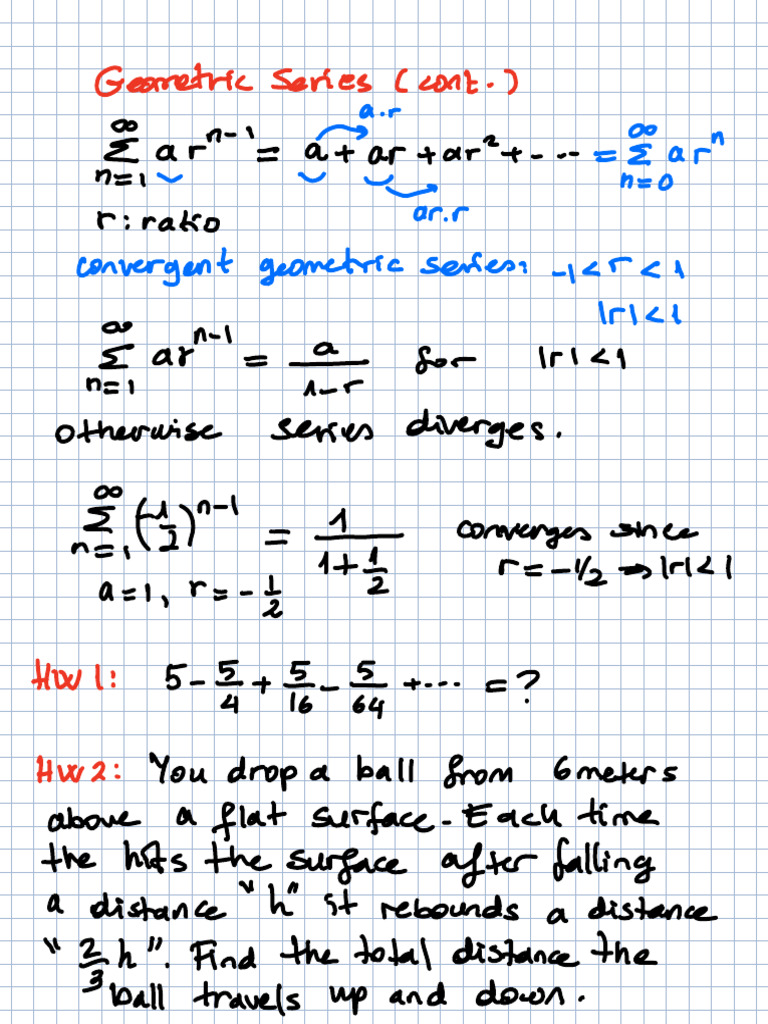 Geometric Series (cont.)
a.r
∞ ∑ n=1 a r^(n-1) = a + ar + ar² + - -- = ∞ ∑ n=0 a r^n
ar.r
r: ratio
convergent geometric series: -1 < r < 1
|r| < 1
∞ ∑ n=1 ar^(n-1) = a/(1-r) for |r| < 1
otherwise series diverges.
∞ ∑ n=1 (-1/2)^(n-1) = 1/(1+1/2) converges since
a=1, r=-1/2 r=-1/2 → |r|<1
HW 1: 5 - 5/4 + 5/16 - 5/64 + ... = ?
HW2: You drop a ball from 6 meters
above a flat surface. Each time
the hits the surface after falling
a distance "h" it rebounds a distance
"2/3 h". Find the total distance the
ball travels up and down.